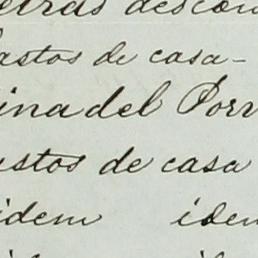 etras descon
astos de casa-
ina del Porr
astos de casa
idem idem